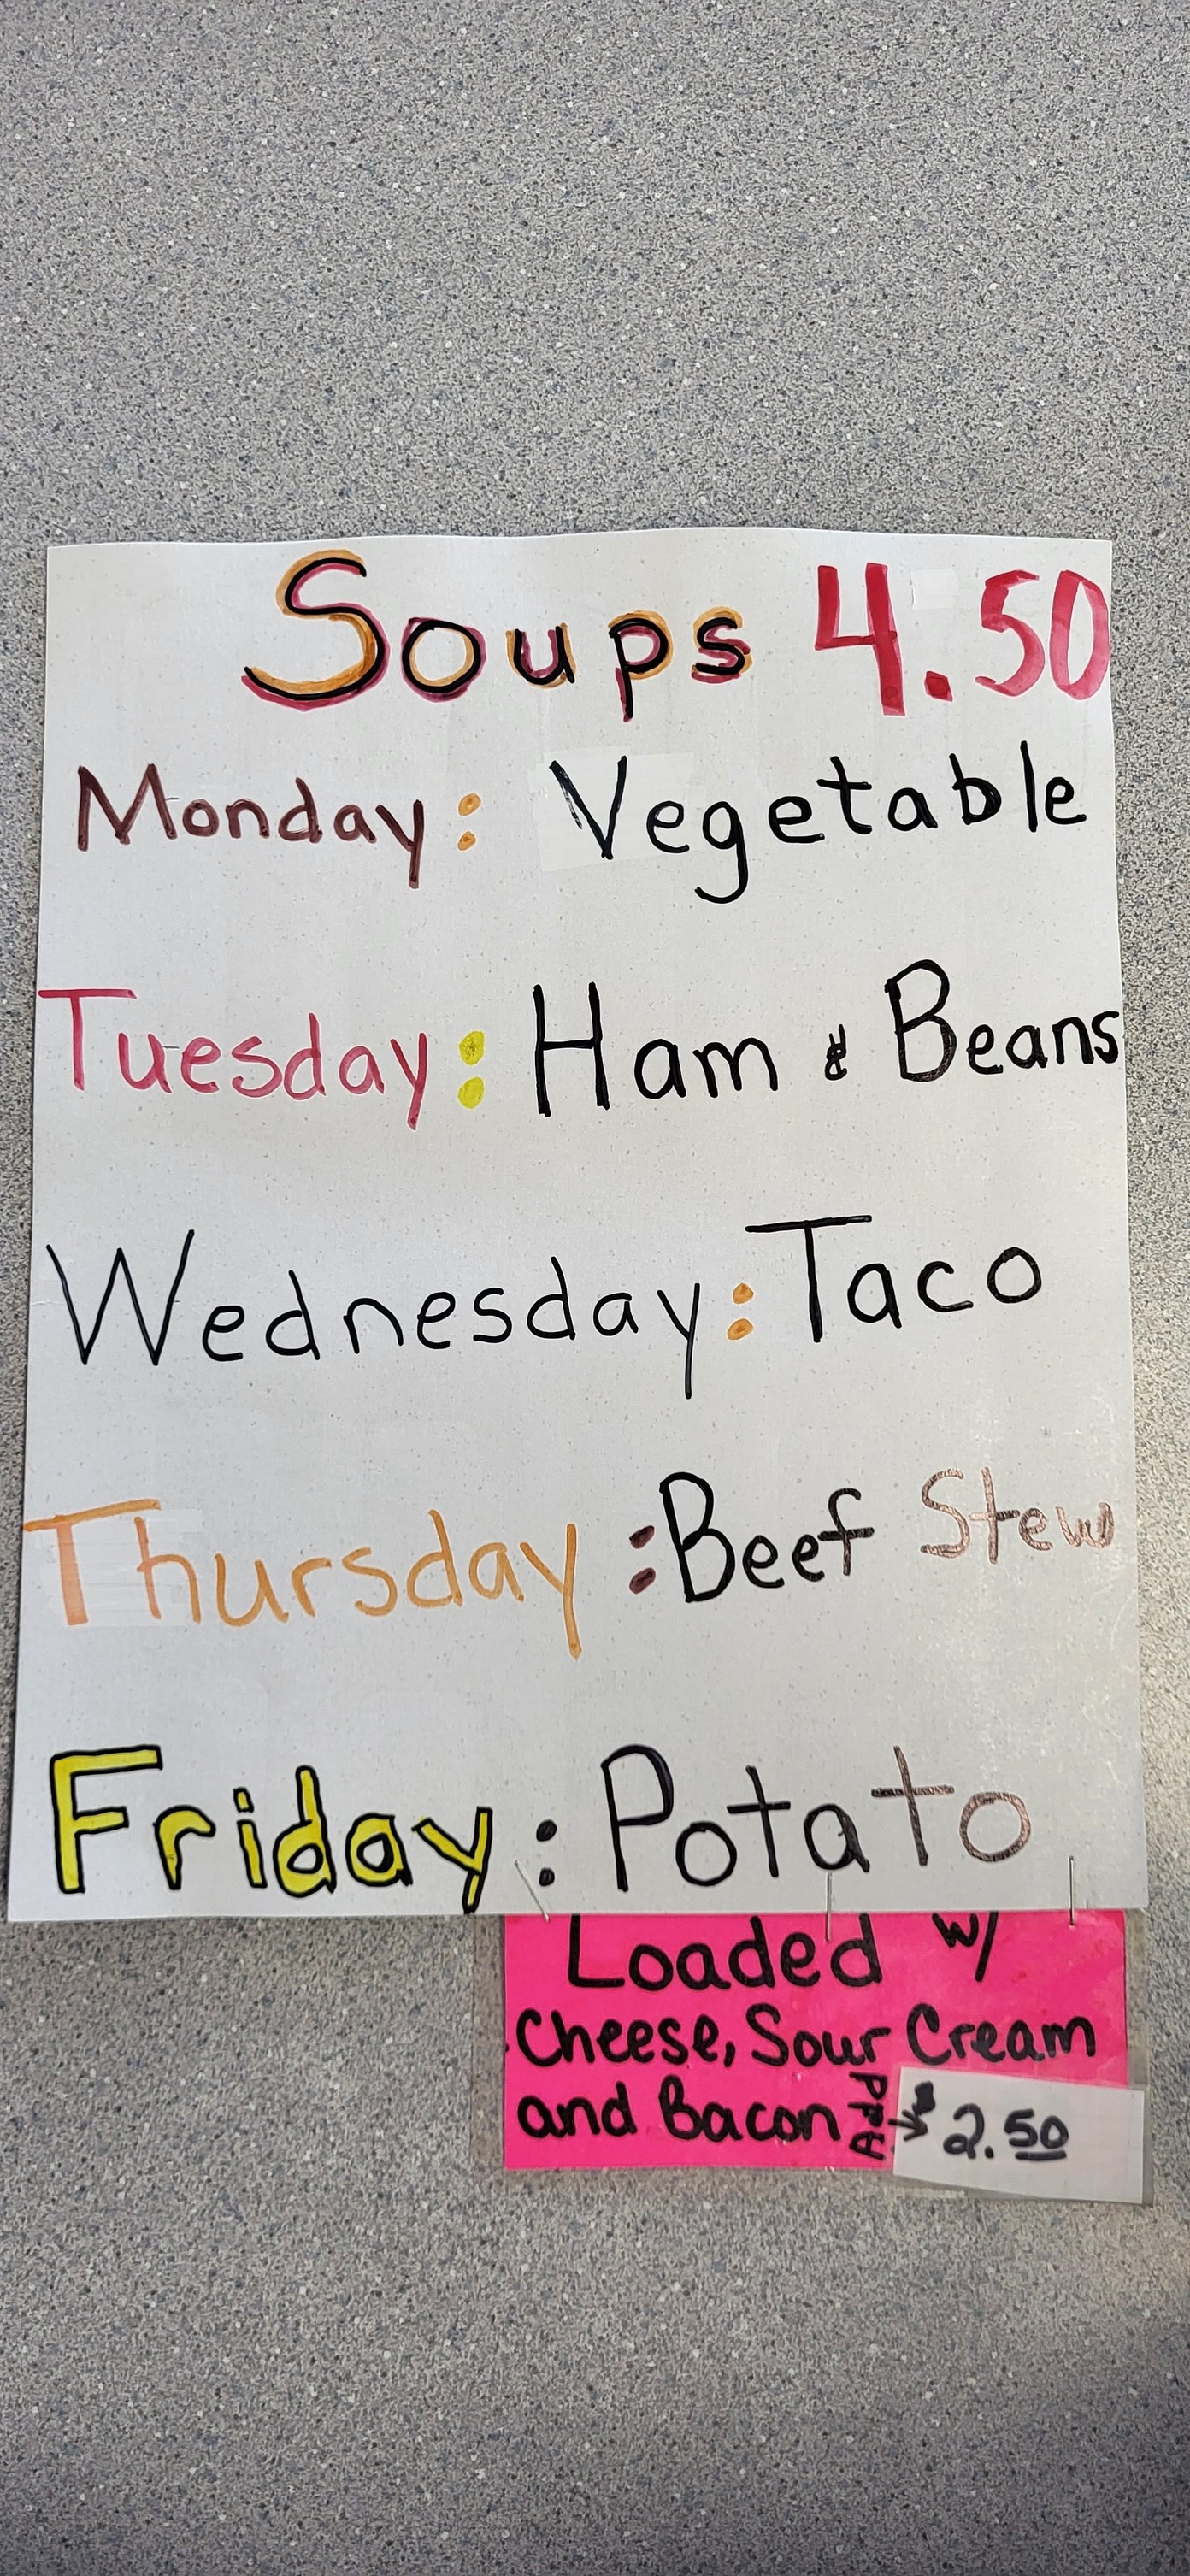 Soups 4.50
Monday: Vegetable
Tuesday: Ham & Beans
Wednesday: Taco
Thursday: Beef Stew
Friday: Potato
Loaded w/
Cheese, Sour Cream
and Bacon Add → $2.50